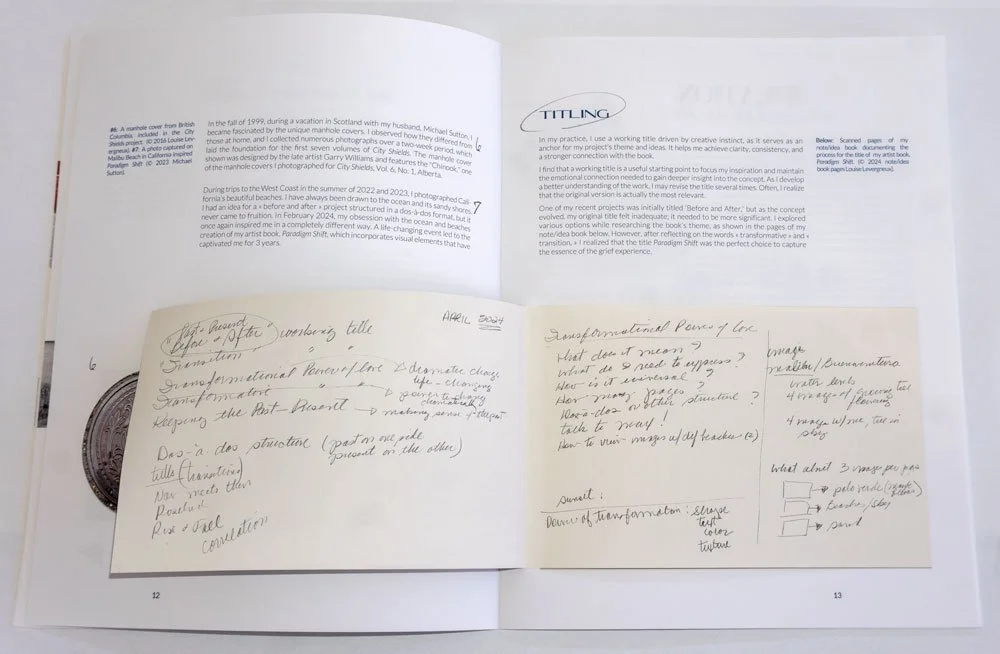 #6: A manhole cover from British
Columbia, included in the City
Shields project. (© 2016 Louise Lev-
ergneux). #7: A photo captured on
Malibu Beach in California inspired
Paradigm Shift (© 2023 Michael
Sutton).
In the fall of 1999, during a vacation in Scotland with my husband, Michael Sutton, I
became fascinated by the unique manhole covers. I observed how they differed from
those at home, and I collected numerous photographs over a two-week period, which
laid the foundation for the first seven volumes of City Shields. The manhole cover
shown was designed by the late artist Garry Williams and features the "Chinook," one
of the manhole covers I photographed for City Shields, Vol. 6, No. 1, Alberta.
6
During trips to the West Coast in the summer of 2022 and 2023, I photographed Cali-
fornia's beautiful beaches. I have always been drawn to the ocean and its sandy shores.
I had an idea for a « before and after » project structured in a dos-à-dos format, but it
never came to fruition. In February 2024, my obsession with the ocean and beaches
once again inspired me in a completely different way. A life-changing event led to the
creation of my artist book, Paradigm Shift, which incorporates visual elements that have
captivated me for 3 years.
7
6
Past & Present
"Before & After" working title
APRIL 2024
"Transition" " "
Transformational Power of love → dramatic change
life-changing
Transformation " "
power to change
dramatically
Keeping the Past Present → making sense of the past
Dos-à-dos structure (past on one side
present on the other)
titles (transitions)
Now meets then
Rosebud
Rise & Fall
correlation
12
TITLING
In my practice, I use a working title driven by creative instinct, as it serves as an
anchor for my project's theme and ideas. It helps me achieve clarity, consistency, and
a stronger connection with the book.
I find that a working title is a useful starting point to focus my inspiration and maintain
the emotional connection needed to gain deeper insight into the concept. As I develop
a better understanding of the work, I may revise the title several times. Often, I realize
that the original version is actually the most relevant.
One of my recent projects was initially titled 'Before and After,' but as the concept
evolved, my original title felt inadequate; it needed to be more significant. I explored
various options while researching the book's theme, as shown in the pages of my
note/idea book below. However, after reflecting on the words « transformative » and «
transition, » I realized that the title Paradigm Shift was the perfect choice to capture
the essence of the grief experience.
Below: Scanned pages of my
note/idea book documenting the
process for the title of my artist book,
Paradigm Shift. (© 2024 note/idea
book pages Louise Levergneux).
Transformational Power of love
What does it mean?
What do I need to express?
How is it universal?
How many pages?
Dos-à-dos or other structure?
talk to
How to view images w/ diff beaches (2)
sunset:
Power of transformation: shape
text
color
texture
image
malibu / Buenaventura
water levels
4 images of growing tree
flowering
4 images w/ me, tree in
sky
What about 3 image per page
→ palo verde
→ Beaches/sky
→ sand
13